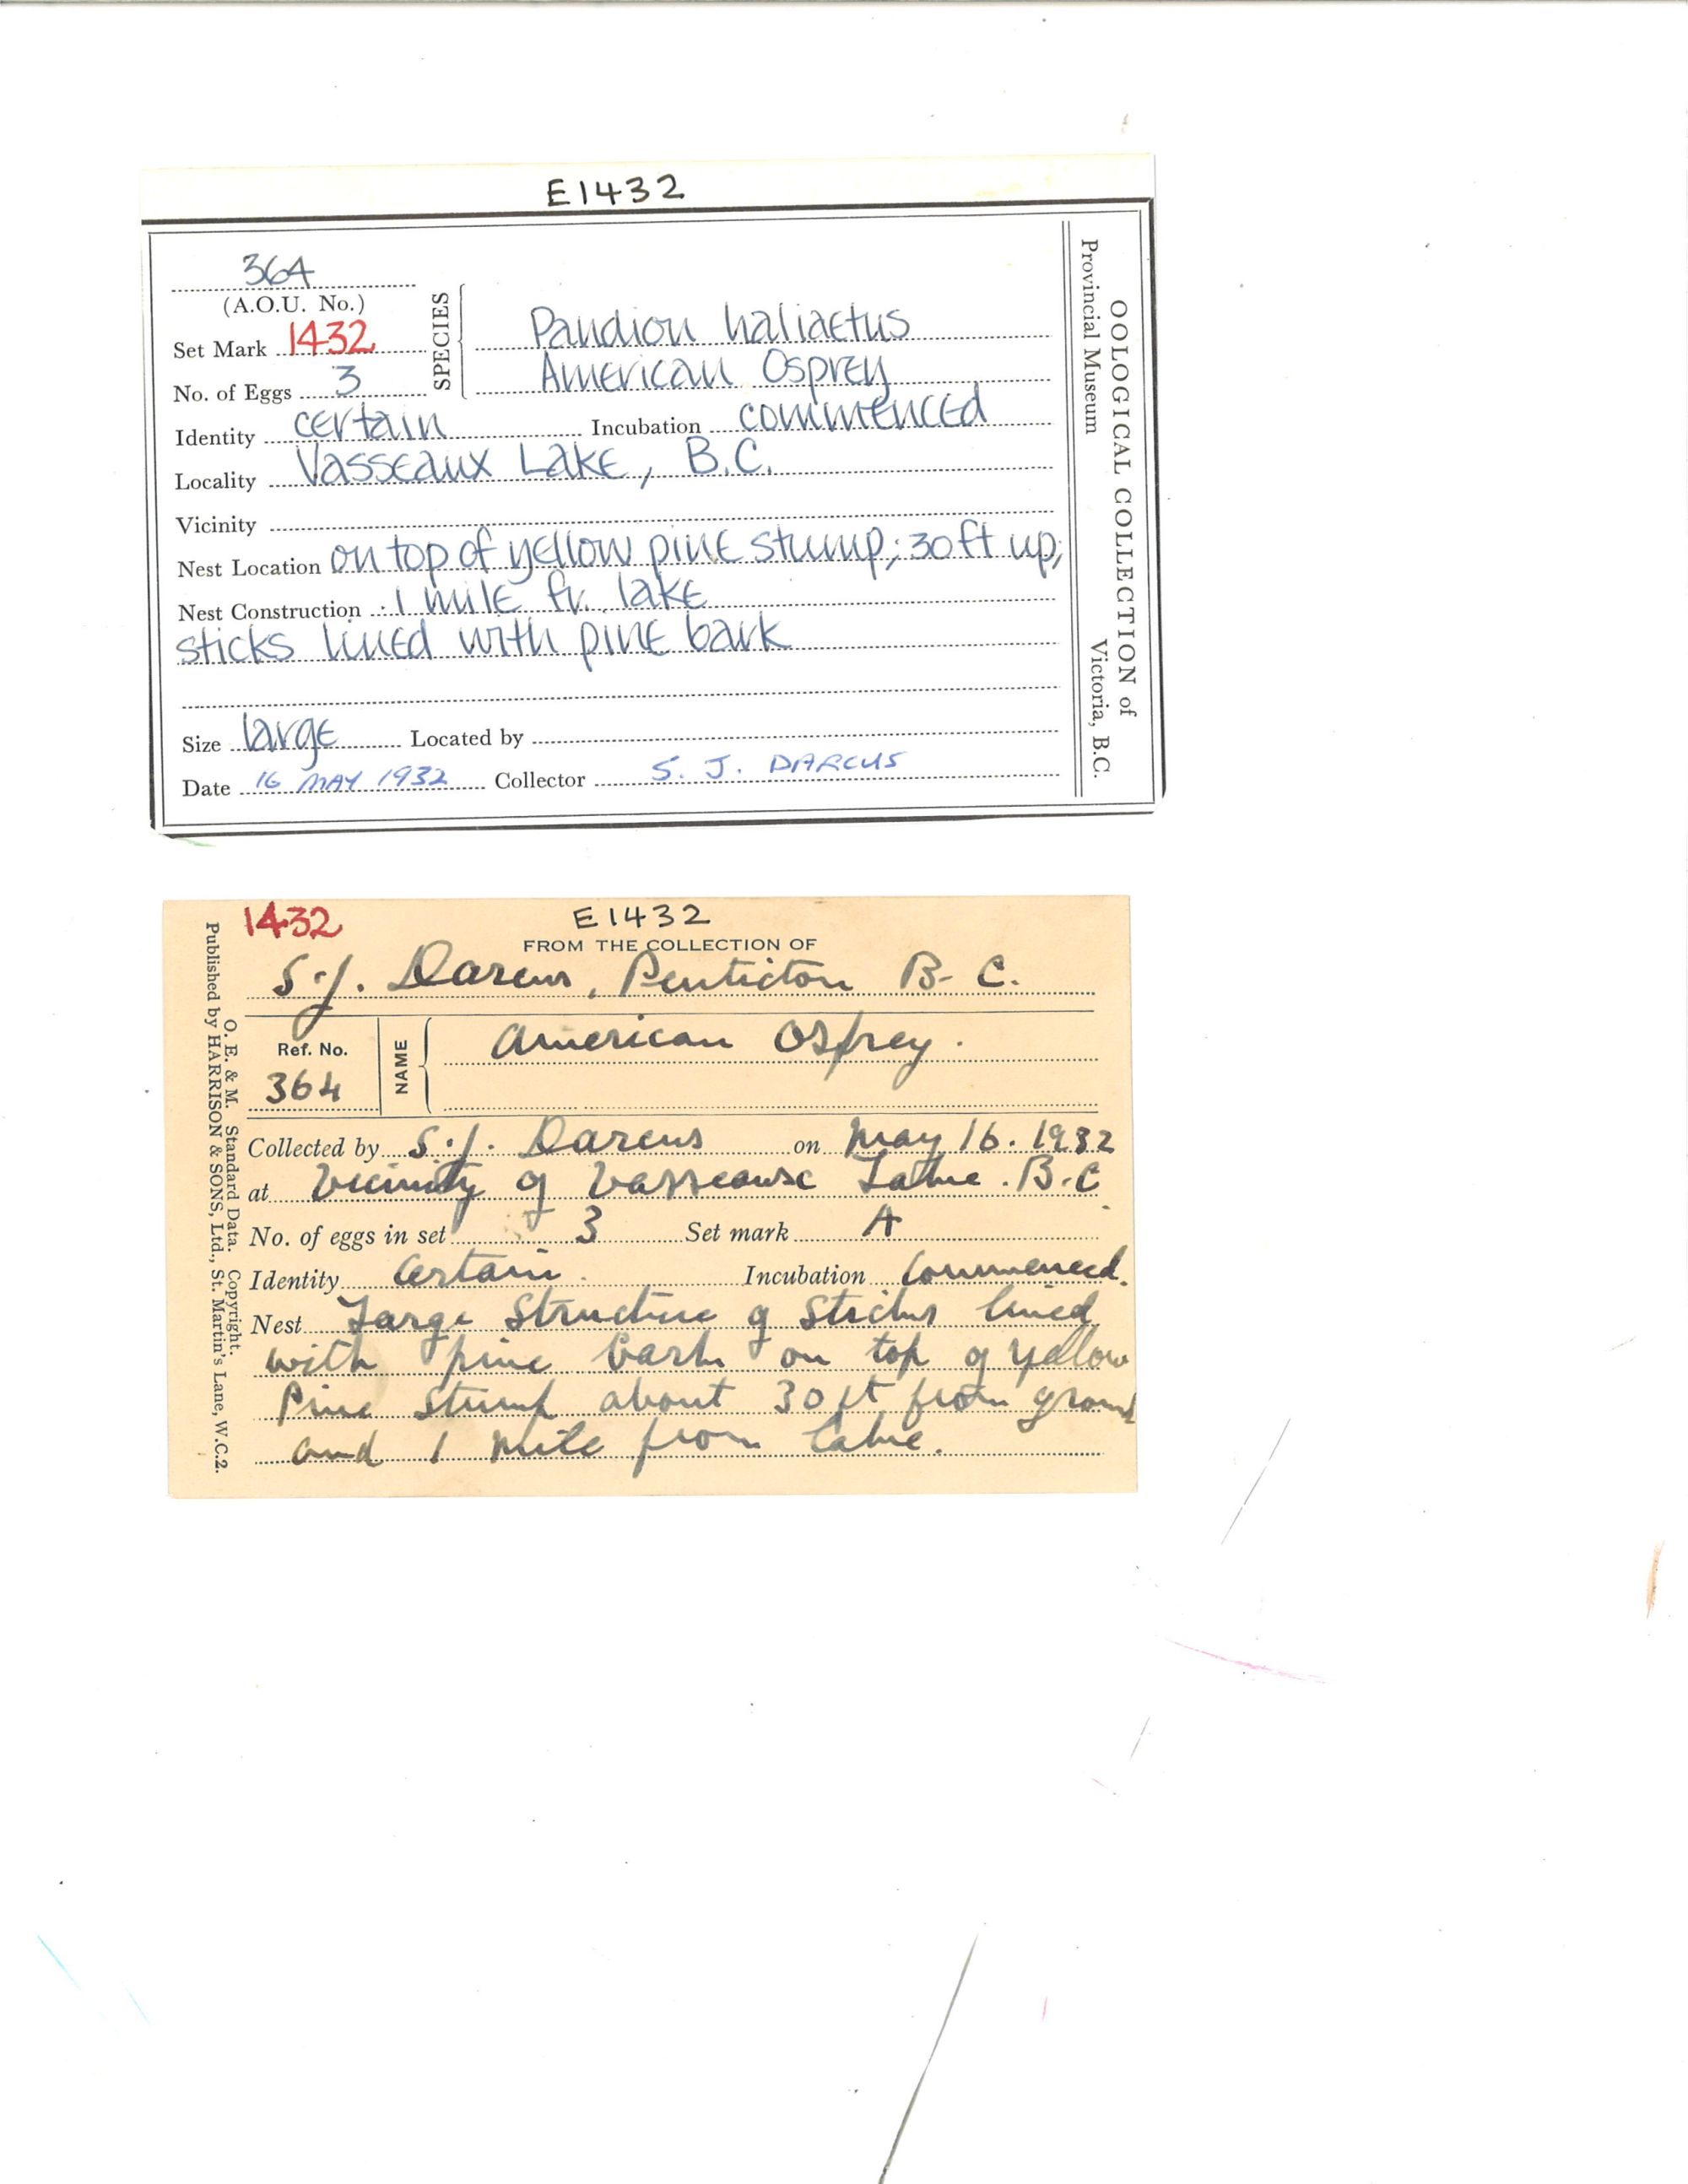 E1432
364
(A.O.U. No.)
SPECIES
Pandion haliaetus
Set Mark 1432
American Osprey
No. of Eggs 3
Identity certain Incubation commenced
Locality Vasseaux Lake, B.C.
Vicinity
Nest Location on top of yellow pine stump; 30 ft up;
Nest Construction 1 mile fr. lake
sticks lined with pine bark
Size large Located by
Date 16 MAY 1932 Collector S. J. DARCUS
OOLOGICAL COLLECTION of
Provincial Museum Victoria, B.C.
1432 E1432
FROM THE COLLECTION OF
S.J. Darcus, Penticton B-C.
Ref. No.
364
NAME
American Osprey.
Collected by S.J. Darcus on May 16. 1932
at Vicinity of Vasseaux Lake. B.C
No. of eggs in set 3 Set mark A
Identity Certain. Incubation Commenced.
Nest Large Structure of Sticks lined
with pine bark on top of yellow
Pine Stump about 30 ft from ground
and 1 mile from lake.
O. E. & M. Standard Data. Copyright.
Published by HARRISON & SONS, Ltd., St. Martin's Lane, W.C.2.